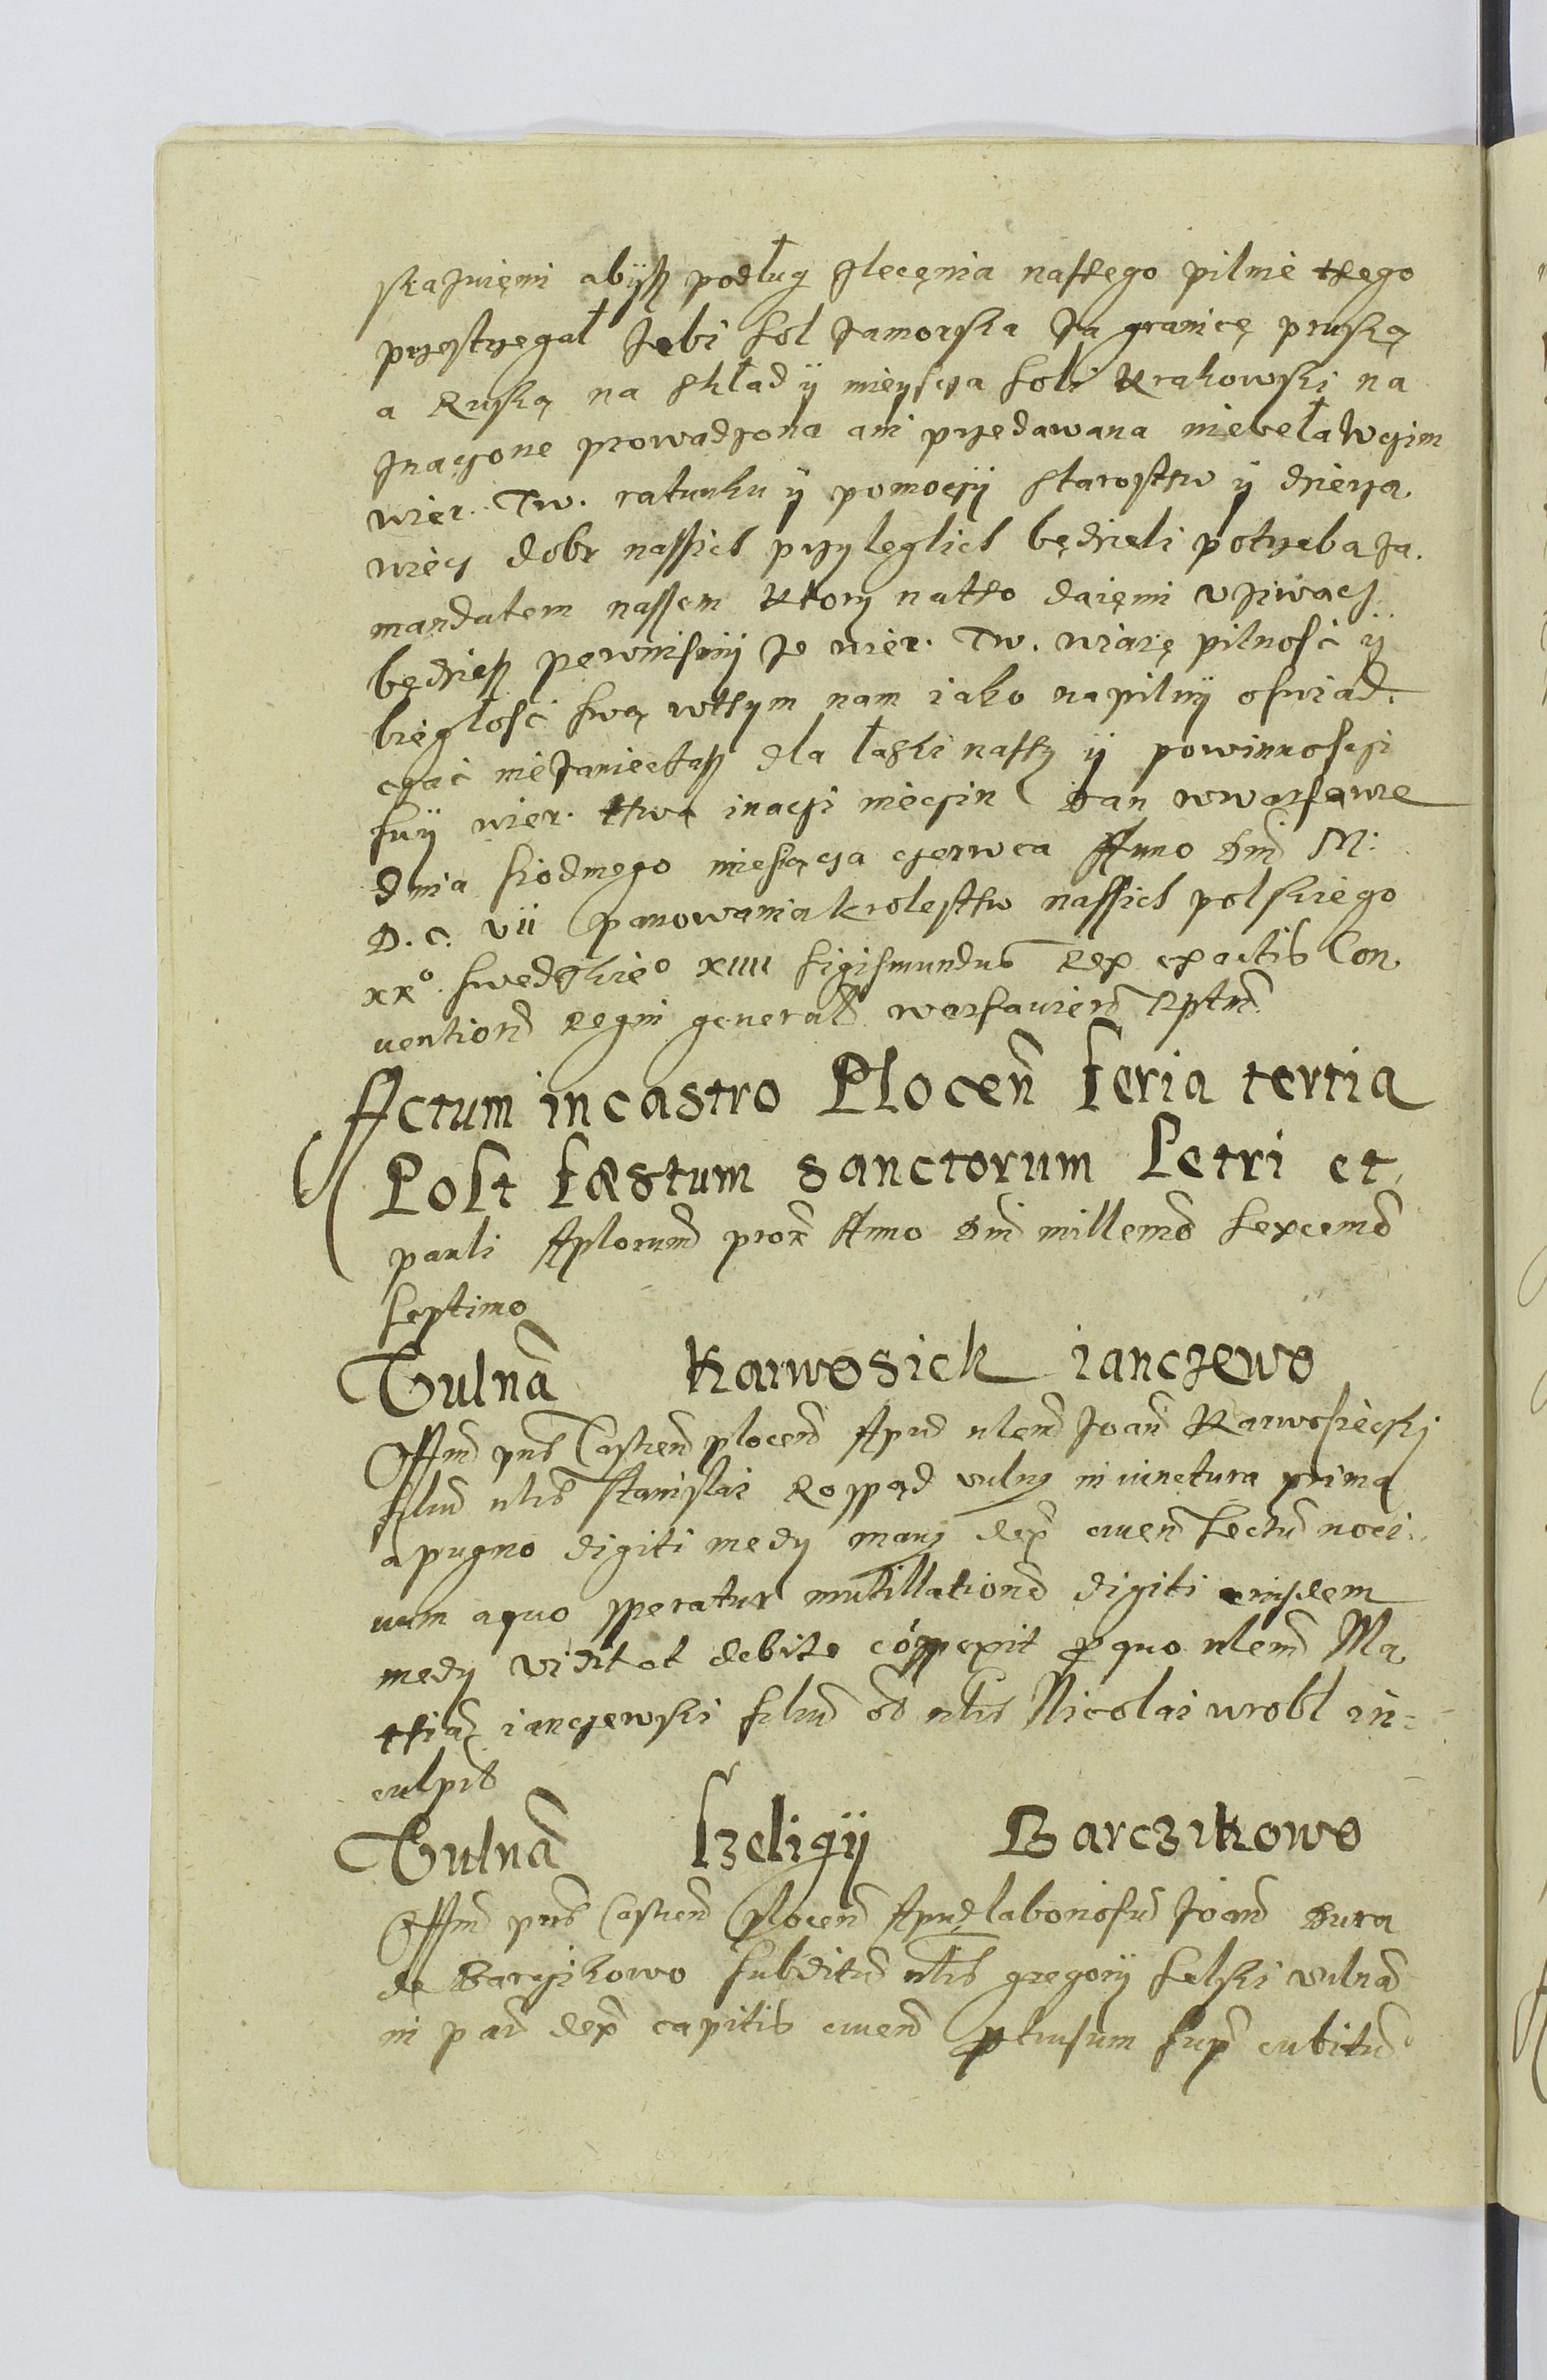 skazuięmi abijsz podług zlecęnia naszego pilnie tzego
przestrzegał zebi sol zamorska za granicę pruską
a Ruską na skład ÿ mieysca soli krakowski na
znaczone prowadzona ani przedawana niebeła wczim
wier. Tw. ratunku ÿ pomoczÿ starosttw ÿ dzierza
więcz dobr nassich przyleglich będzieli potrzeba za
mandatem nassem ktory natto daięmi uziwacz
będziesz pewnismÿ ze wier. Tw. wiarę pilnosć ÿ
biegłosć swą wttym nam iako napilnÿ oswiad.
czać niezaniechasz dla łaski naszÿ ÿ powinnosczi
swÿ wier. ttwa inaczi nieczin Dan wwarszawie
dnia siodmego miesiącza czerwca Anno Dni M:
D. C. vii panowania krolesttw nassich polskiego
xx° swedzkie° xiiii Sigismundus Rex ex actis Con
uention Regni general warsauien Rptm
Actum in castro Plocen feria tertia
Post fæstum sanctorum Petri et
pauli Aplorum prox Anno Dni millemo sexcemo
septimo
Vulna Karwosiek ianczewo
Offm pns Castren plocen Apud nlem Joan Karwosieczki
filiu nlis stanislai Rospąd vulnꝯ in iunctura prima
a pugno digiti medÿ manꝯ dex cruen sectu noci
uum a quo speratur mutillatione digiti eiusdem
medÿ vidit et debite cōspexit ꝓ quo nlem Ma
tthia ianczewski filiu oł nlis Nicolai wrobl in=
culpis
Vulna szeligÿ Barczikowo
Offm pns Castren plocen Apud laboriosu Joan Dura
de Barczikowo subditu nlis gregorÿ selski vulna
in par dex capitis cruen ptusum supr cubitu